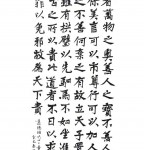 道者萬物之奧善人之寶不善人之所
保美言可以市尊行可以加人人
之不善何棄之有故立天子置三公
雖有拱璧以先駟馬不如坐進此
道古之所以貴此道者何不曰以求得
有罪以免邪故為天下貴